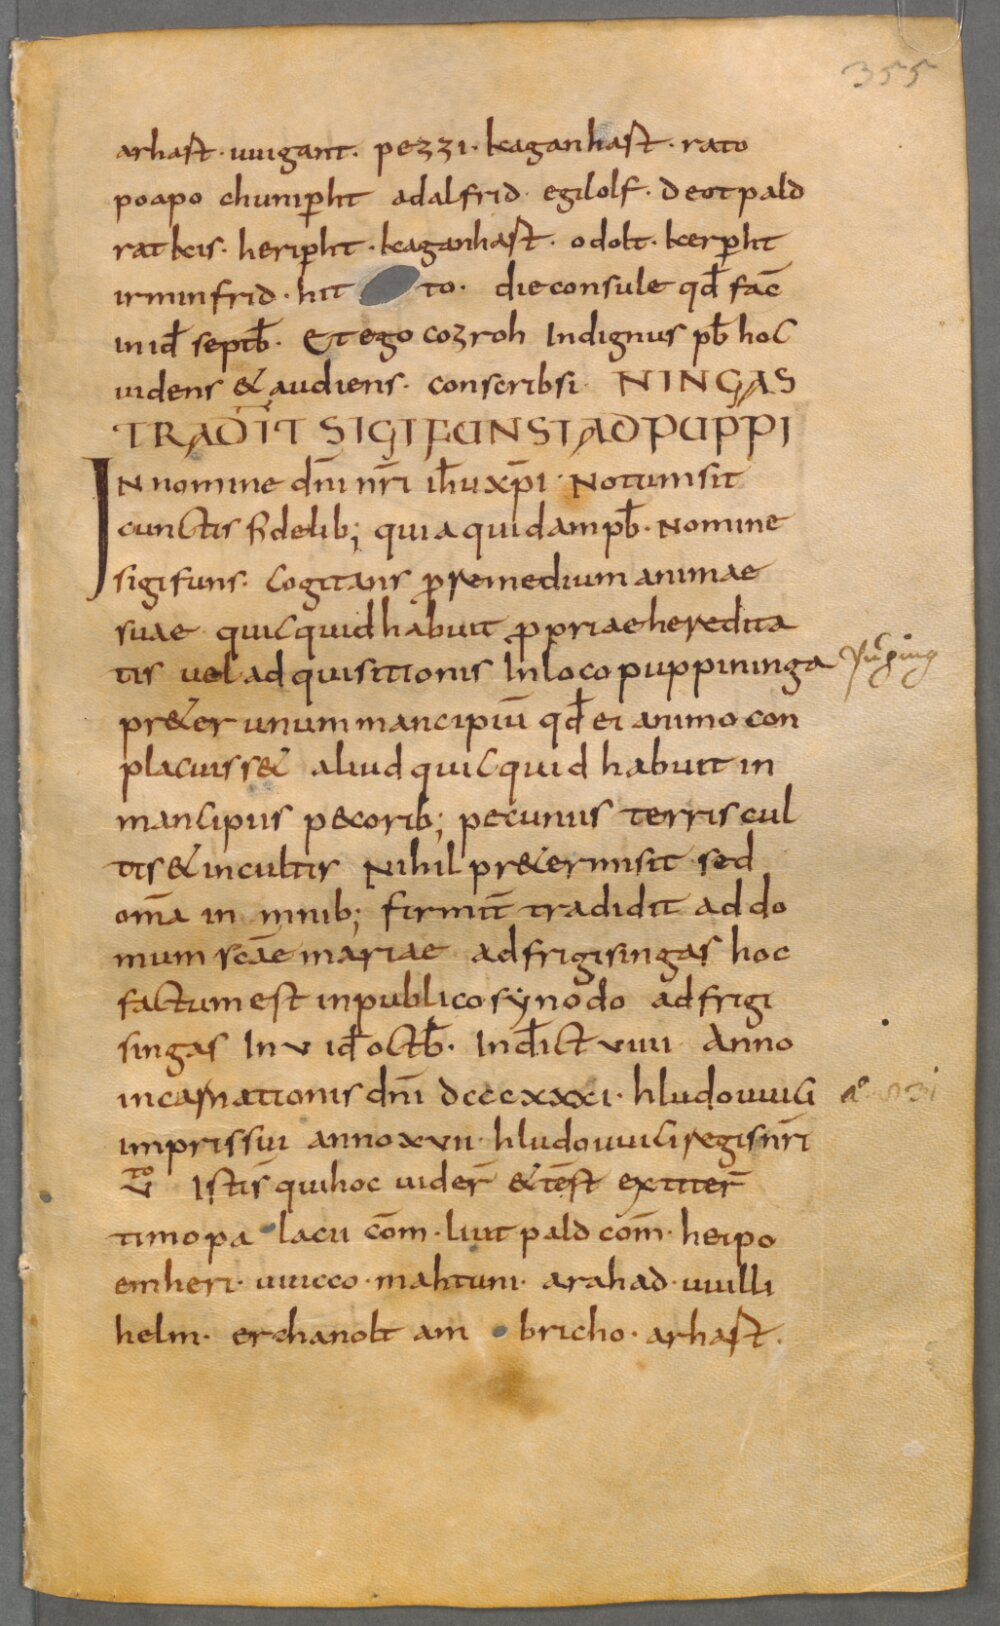 355
arhaſt · uuigant · pezzi · keaganhaſt · rato
poapo chunip̱ht adalfrid · egilolf · deotpald
ratkis · herip̱ht · keaganhaſt · odolt · kerp̱ht
irminfrid · hit to · die consule qđ fac̄
in iđ septb̄ · Et ego cozroh Indignus pb̄ hoc
uidens & audiens · conscribsi · NINGAS
TRADIT SIGIFUNS IAD PUPPI
IN nomine dn̄i nr̄i ih̄u xp̄i · Notum sit
cunctis fidelib; quia quidam pb̄ · Nomine
sigifuns · Cogitans ꝓ remedium animae
suae quicquid habuit ꝓpriae heredita
tis uel adquisitionis In loco puppininga
pr&er unum mancipiū qđ ei animo con
placuiss& aliud quicquid habuit in
mancipiis pecorib; pecuniis terris cul
tis & incultis Nihil pr&ermisit sed
om̄a in mnib; firmit̄ tradidit ad do
mum sc̄ae mariae ad frigisingas hoc
factum est in publico sẏnodo ad frigi
singas In v iđ octb̄ · Indict̄ viiii Anno
incarnationis dn̄i dcccxxxi · hludouuici a° 831
imprissiui anno xvii · hludouuici regis nr̄i
v to Istis qui hoc uider̄ & test̄ extiter̄
timo palacii com̄ · liutpald com̄ · heipo
emheri · uuicco · mahtuni · arahad · uuilli
helm · erchanolt ambricho · arhaſt ·